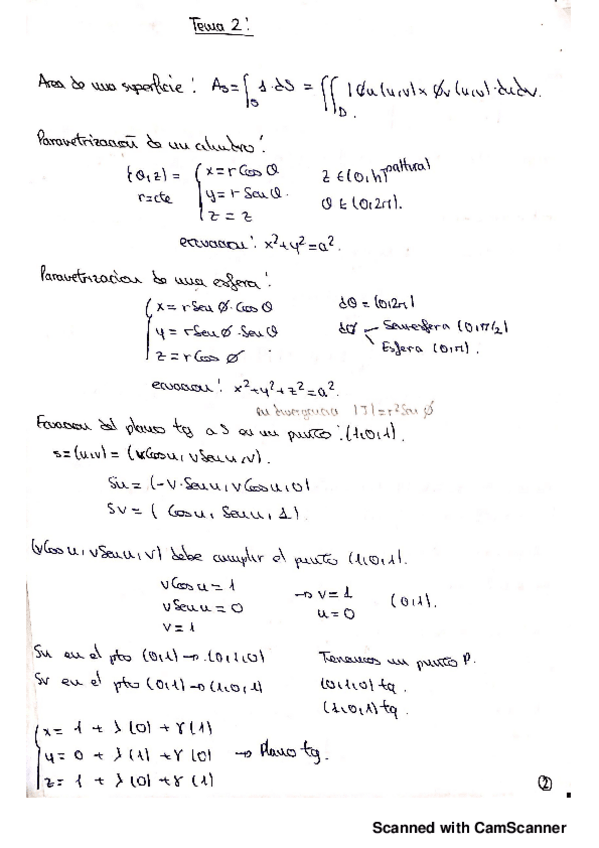 Tema 2:
Area de una superficie: As = ∫s 1·dS = ∬D |Φu(u,v) x Φv(u,v)·dudv.
Parametrización de un cilindro:
(θ,z) = { x = r Cos θ
r=cte y = r Sen θ.
z = z
z ∈ (0,h) → altura
θ ∈ (0,2π).
ecuacion: x²+y²=a².
Parametrizacion de una esfera:
{ x = r Sen Ø · Cos θ
y = r Sen Ø · Sen θ
z = r Cos Ø
dθ = (0,2π)
dØ Semiesfera (0,π/2)
Esfera (0,π).
ecuacion: x²+y²+z²=a².
en divergencia |J|=r² Sen Ø
Ecuacion del plano tg a S en un punto: (1,0,1).
S=(u,v) = (vCos u, vSen u, v).
Su = (-v·Sen u, vCos u, 0)
Sv = (Cos u, Sen u, 1).
(vCos u, vSen u, v) debe cumplir el punto (1,0,1).
vCos u = 1
vSen u = 0
v = 1
→ v = 1
u = 0
(0,1).
Su en el pto (0,1) → (0,1,0)
Sv en el pto (0,1) → (1,0,1)
Tenemos un punto P.
(0,1,0) tg.
(1,0,1) tg.
{ x = 1 + λ(0) + γ(1)
y = 0 + λ(1) + γ(0) → Plano tg.
z = 1 + λ(0) + γ(1)
2
Scanned with CamScanner